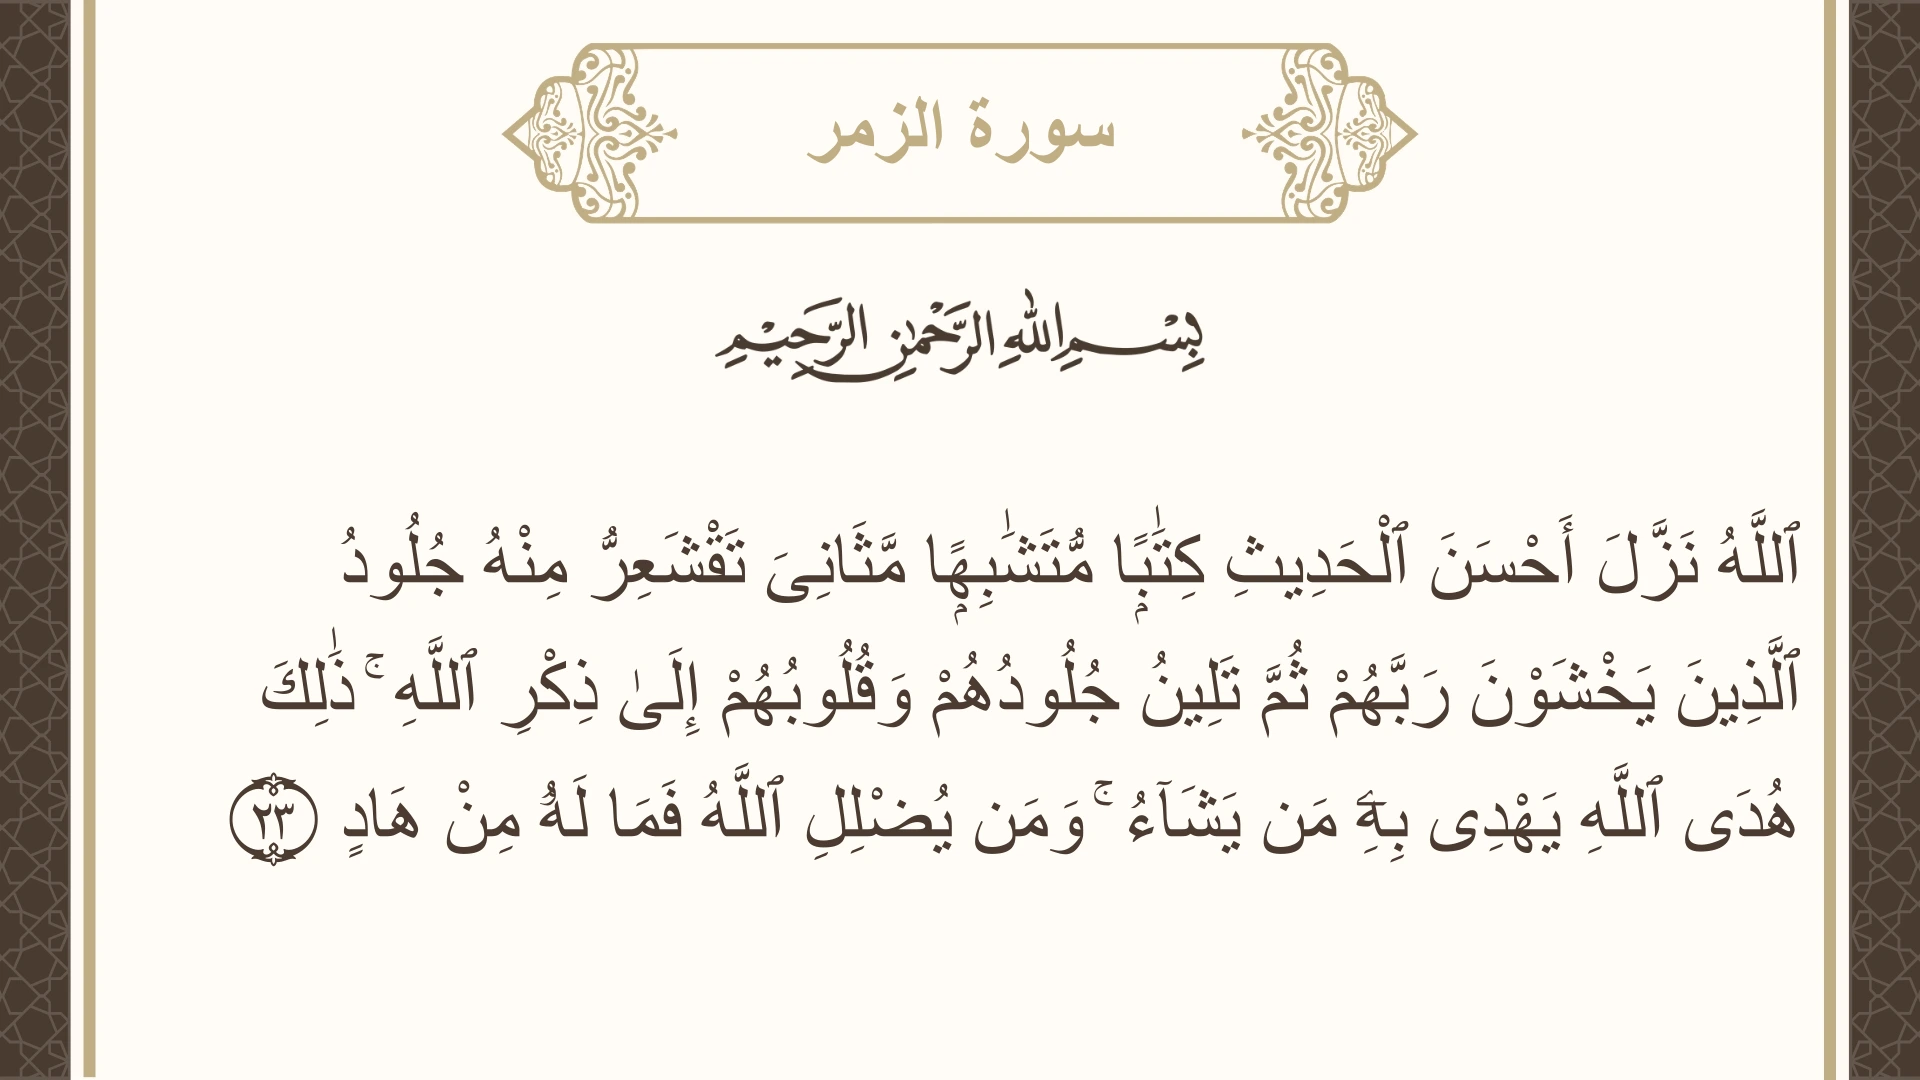 سورة الزمر
بِسْمِ اللهِ الرَّحْمٰنِ الرَّحِيْمِ
ٱللَّهُ نَزَّلَ أَحْسَنَ ٱلْحَدِيثِ كِتَٰبًۭا مُّتَشَٰبِهًۭا مَّثَانِىَ تَقْشَعِرُّ مِنْهُ جُلُودُ
ٱلَّذِينَ يَخْشَوْنَ رَبَّهُمْ ثُمَّ تَلِينُ جُلُودُهُمْ وَقُلُوبُهُمْ إِلَىٰ ذِكْرِ ٱللَّهِ ۚ ذَٰلِكَ
هُدَى ٱللَّهِ يَهْدِى بِهِۦ مَن يَشَآءُ ۚ وَمَن يُضْلِلِ ٱللَّهُ فَمَا لَهُۥ مِنْ هَادٍ ٢٣